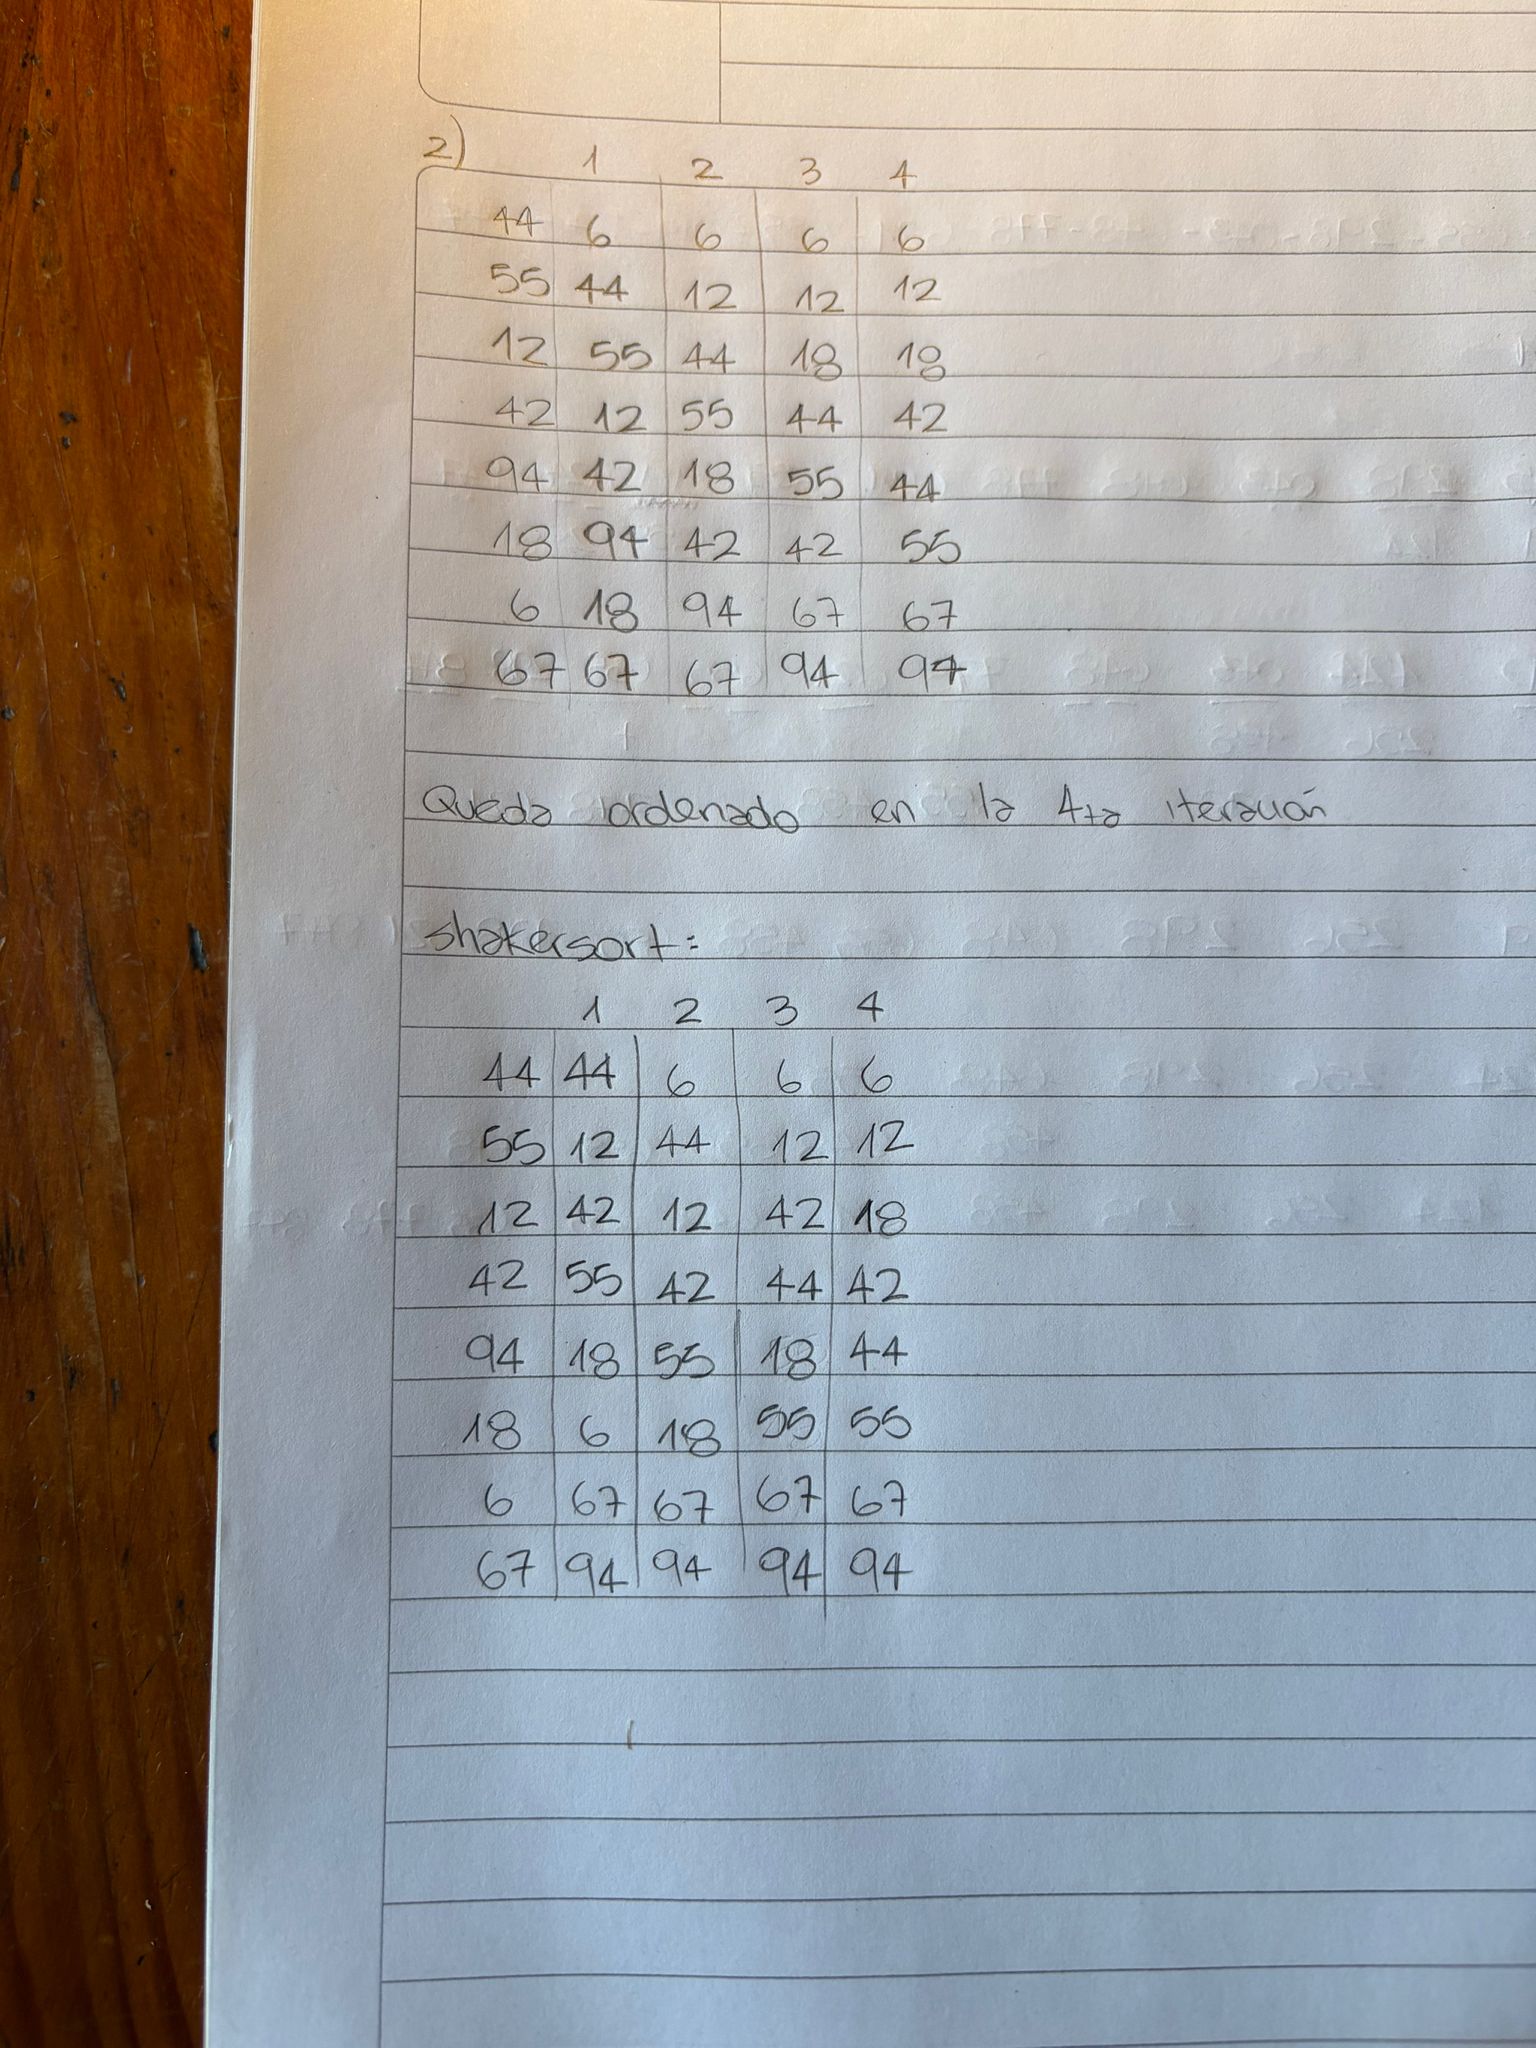 2) 1 2 3 4
44 6 6 6 6
55 44 12 12 12
12 55 44 18 18
42 12 55 44 42
94 42 18 55 44
18 94 42 42 55
6 18 94 67 67
67 67 67 94 94
Queda ordenado en la 4ta iteración
shakersort:
1 2 3 4
44 44 6 6 6
55 12 44 12 12
12 42 12 42 18
42 55 42 44 42
94 18 55 18 44
18 6 18 55 55
6 67 67 67 67
67 94 94 94 94